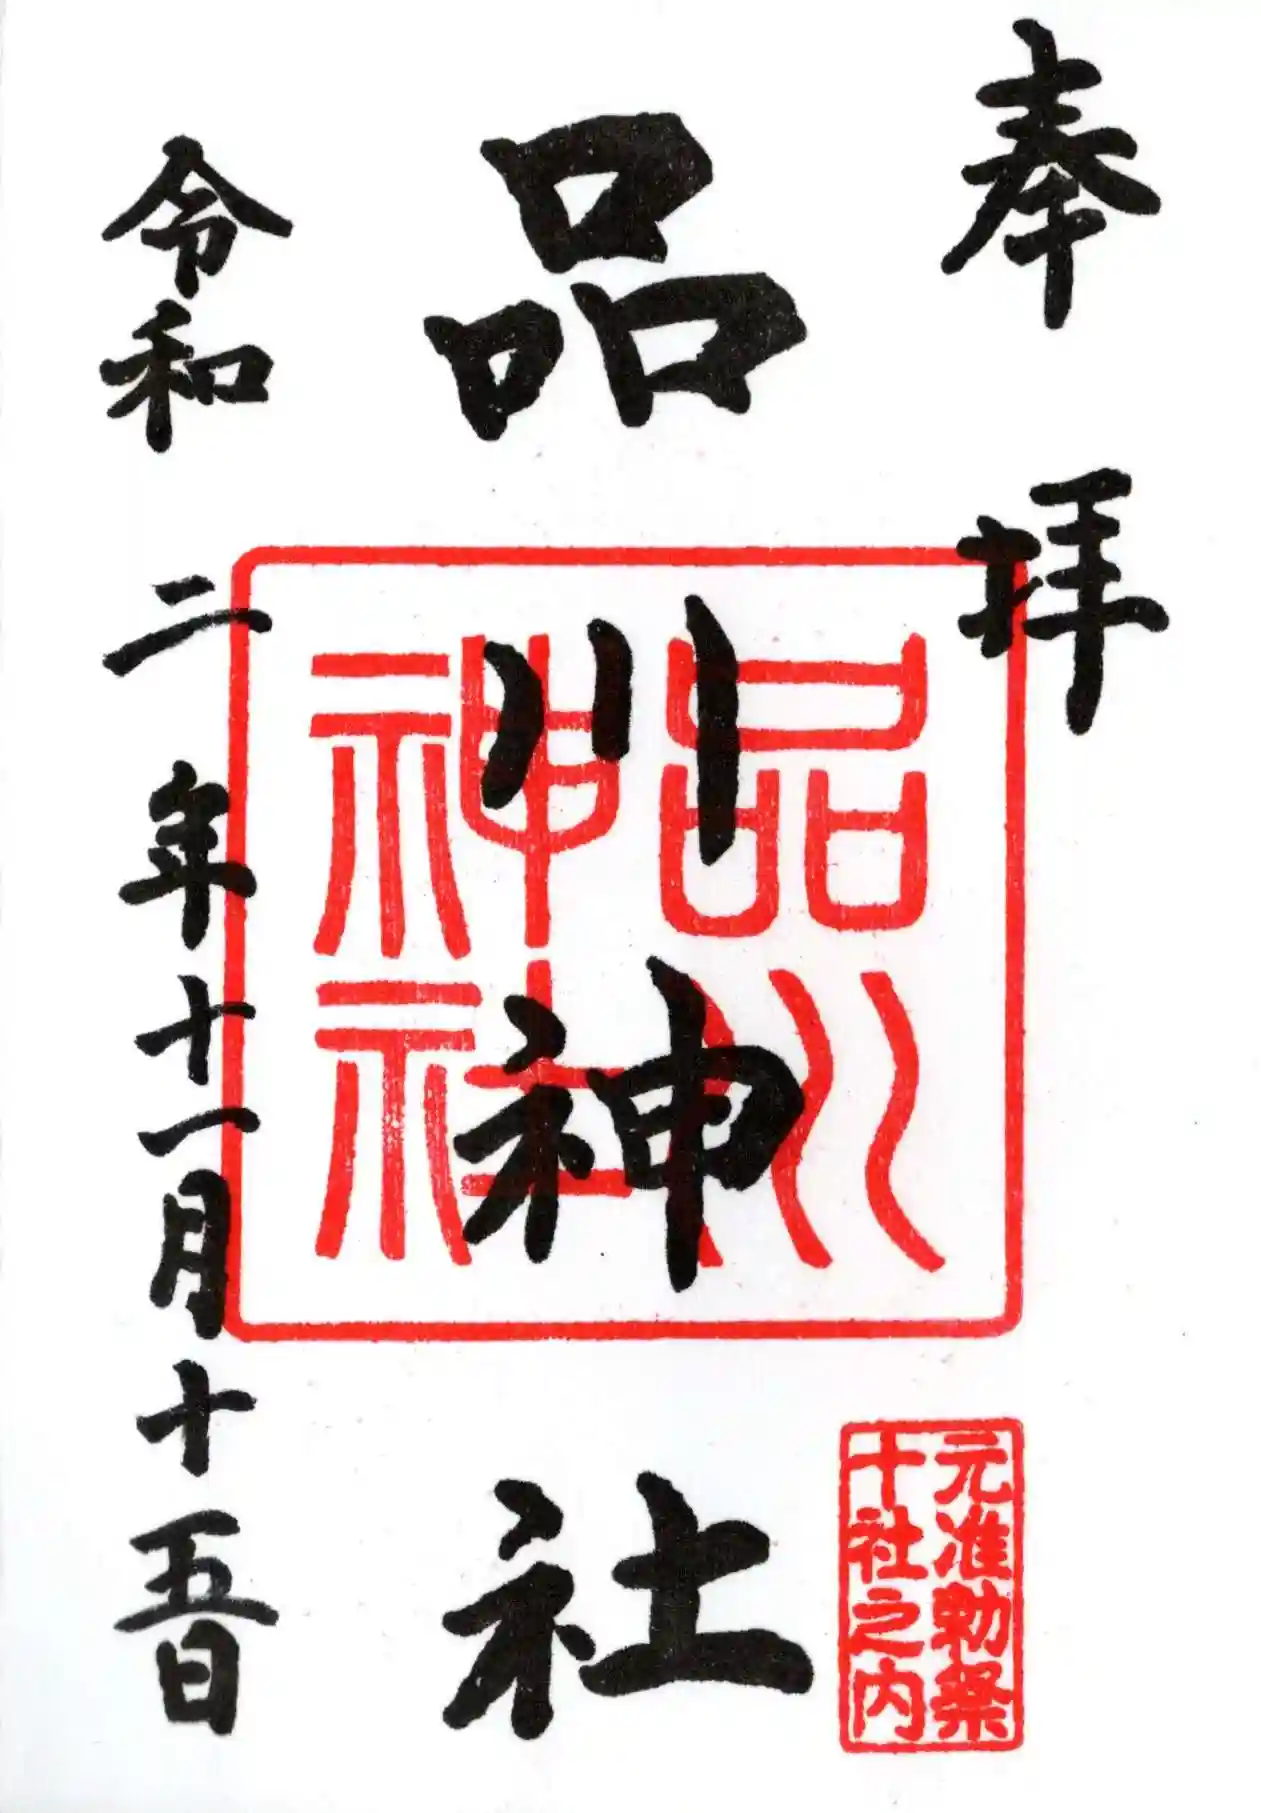 奉拝
品川神社
品川
神社
元准勅祭
十社之内
令和二年十一月十五日